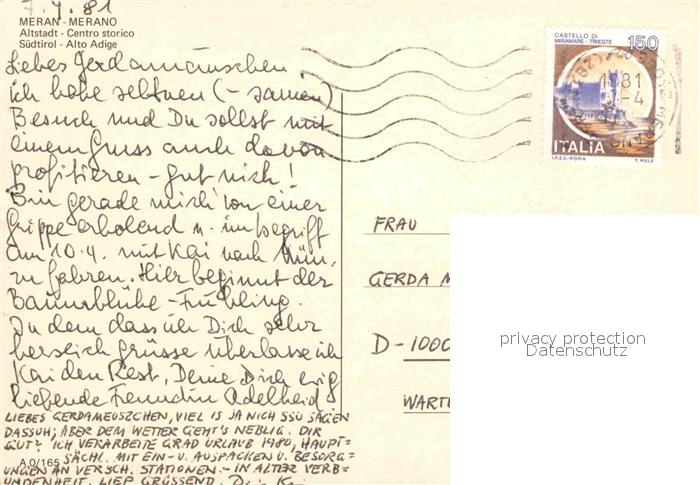 7.4.81
MERAN - MERANO
Altstadt - Centro storico
Südtirol - Alto Adige
CASTELLO DI
MIRAMARE - TRIESTE
150
1981
ITALIA
I.P.Z.S.-ROMA T. MELE
Liebes Gerdamäuschen
ich habe seltnen (-samen)
Besuch und Du sollst mit
einem Gruss auch davon
profitieren - gut nich!
Bin gerade mich von einer
Grippe erholend u. im begriff
am 10.4. mit Kai nach Mün.
zu fahren. Hier beginnt der
Baumblühe - Frühling.
In dem dass ich Dich sehr
herzlich grüsse überlasse ich
Kai den Rest, Deine Dich ewig
liebende Freundin Adelheid
LIEBES GERDAMEUSZCHEN, VIEL IS JA NICH SSU SAGEN
DASSUH; ABER DEM WETTER GEHT'S NEBLIG. DIR
GUT? ICH VERARBEITE GRAD URLAUB 1980, HAUPT=
SÄCHL. MIT EIN- U. AUSPACKEN U. BESORG=
UNGEN AN VERSCH. STATIONEN. - IN ALTER VERB=
UNDENHEIT. LIEP GRÜSSEND. Dein Kai
A.0/165
FRAU
GERDA M
D-1000
WARTE
privacy protection
Datenschutz